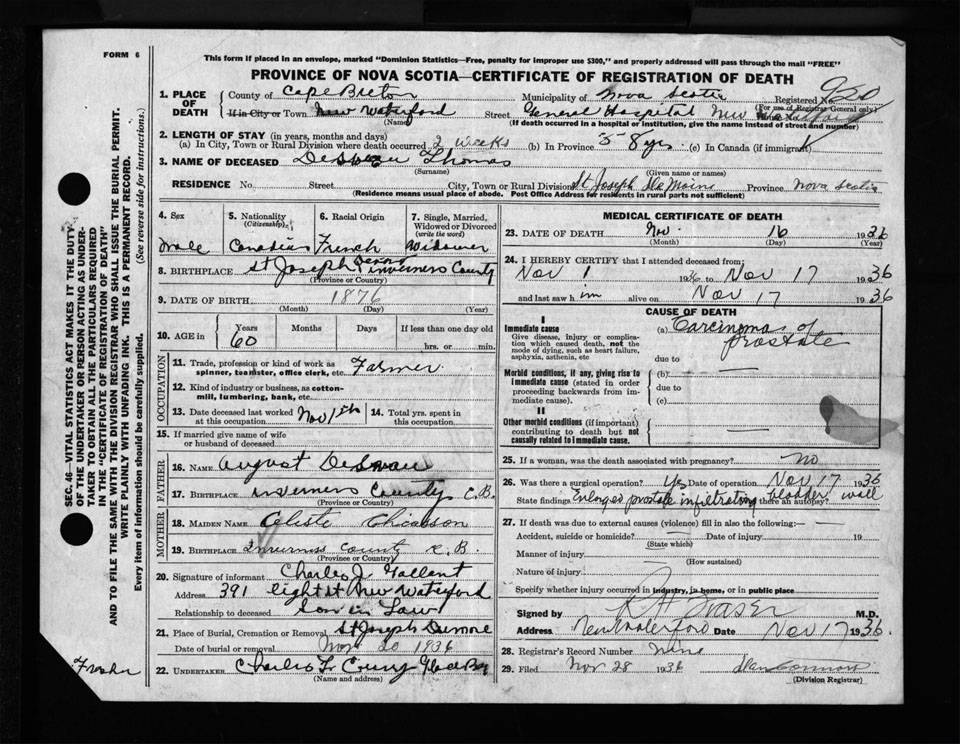 FORM 6
This form if placed in an envelope, marked "Dominion Statistics—Free, penalty for improper use $300," and properly addressed will pass through the mail "FREE"
PROVINCE OF NOVA SCOTIA—CERTIFICATE OF REGISTRATION OF DEATH
SEC. 46—VITAL STATISTICS ACT MAKES IT THE DUTY
OF THE UNDERTAKER OR PERSON ACTING AS UNDER-
TAKER TO OBTAIN ALL THE PARTICULARS REQUIRED
IN THE "CERTIFICATE OF REGISTRATION OF DEATH"
AND TO FILE THE SAME WITH THE DIVISION REGISTRAR WHO SHALL ISSUE THE BURIAL PERMIT.
WRITE PLAINLY WITH UNFADING INK. THIS IS A PERMANENT RECORD.
Every item of information should be carefully supplied. (See reverse side for instructions.)
1. PLACE OF DEATH
County of Cape Breton Municipality of Nova Scotia Registered No. 920
(For use of Registrar General only)
If in City or Town New Waterford Street General Hospital New
(Name) (If death occurred in a hospital or institution, give the name instead of street and number)
2. LENGTH OF STAY (in years, months and days)
(a) In City, Town or Rural Division where death occurred 2 weeks (b) In Province 58 yrs. (c) In Canada (if immigrant)
3. NAME OF DECEASED Thomas
(Surname) (Given name or names)
RESIDENCE No. Street City, Town or Rural Division St Joseph De Moine Province Nova Scotia
(Residence means usual place of abode. Post Office Address for residents in rural parts not sufficient)
4. Sex Male
5. Nationality (Citizenship) Canadian
6. Racial Origin French
7. Single, Married, Widowed or Divorced (write the word) Widower
8. BIRTHPLACE St Joseph Inverness County
(Province or Country)
9. DATE OF BIRTH 1876
(Month) (Day) (Year)
10. AGE in Years 60 Months Days If less than one day old hrs. or min.
OCCUPATION
11. Trade, profession or kind of work as spinner, teamster, office clerk, etc. Farmer
12. Kind of industry or business, as cotton-mill, lumbering, bank, etc.
13. Date deceased last worked at this occupation Nov 1th
14. Total yrs. spent in this occupation
15. If married give name of wife or husband of deceased
FATHER
16. NAME August
17. BIRTHPLACE Inverness County C.B.
(Province or Country)
MOTHER
18. MAIDEN NAME Celiste Chiasson
19. BIRTHPLACE Inverness County C.B.
(Province or Country)
20. Signature of informant Charles J. Gallant
Address 391 Eight St New Waterford
Relationship to deceased Son in Law
21. Place of Burial, Cremation or Removal St Joseph
Date of burial or removal Nov 20 1936
22. UNDERTAKER Charles L. Glace Bay
(Name and address)
MEDICAL CERTIFICATE OF DEATH
23. DATE OF DEATH Nov. 16 1936
(Month) (Day) (Year)
24. I HEREBY CERTIFY that I attended deceased from:
Nov 1 1936 to Nov 17 1936
and last saw him alive on Nov 17 1936
CAUSE OF DEATH
I
Immediate cause
Give disease, injury or complica-
tion which caused death, not the
mode of dying, such as heart failure,
asphyxia, asthenia, etc
(a) Carcinoma of prostate
due to
Morbid conditions, if any, giving rise to
immediate cause (stated in order
proceeding backwards from im-
mediate cause).
(b) —
due to
(c)
II
Other morbid conditions (if important)
contributing to death but not
causally related to immediate cause.
—
25. If a woman, was the death associated with pregnancy? no
26. Was there a surgical operation? Yes Date of operation Nov 17 1936
State findings Enlarged prostate infiltrating bladder wall Was there an autopsy?
27. If death was due to external causes (violence) fill in also the following:—
Accident, suicide or homicide? Date of injury 19
(State which)
Manner of injury
(How sustained)
Nature of injury
Specify whether injury occurred in industry, in home, or in public place
Signed by M.D.
Address New Waterford Date Nov 17 1936.
28. Registrar's Record Number
29. Filed Nov 28 1936
(Division Registrar)